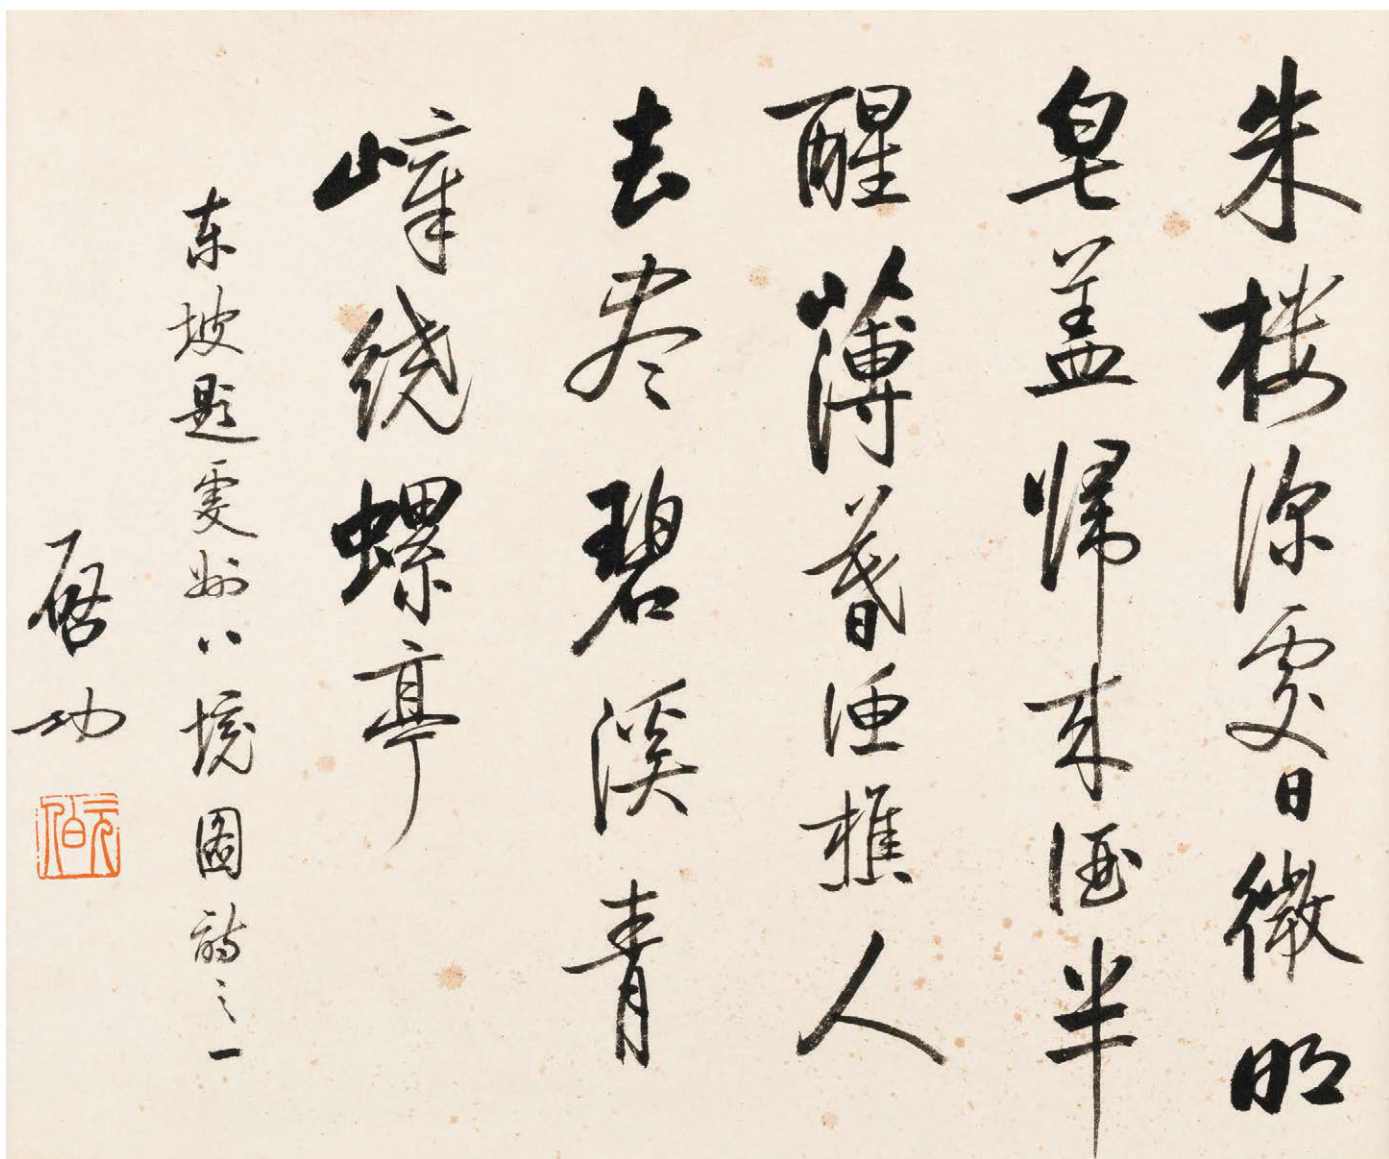 朱楼深处日微明
皂盖归来酒半
醒薄暮渔樵人
去尽碧溪青
嶂绕螺亭
东坡题虔州八境图诗之一
启功
元白